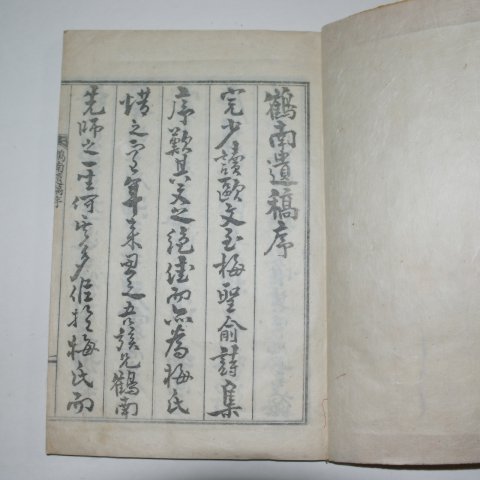 鶴南遺稿序
完少讀歐文至梅聖俞詩集
序歎其文之絶佳而亦爲梅氏
惜之年來思之吾族兄鶴南
先師之一生何其多
梅氏而
鶴南遺稿序